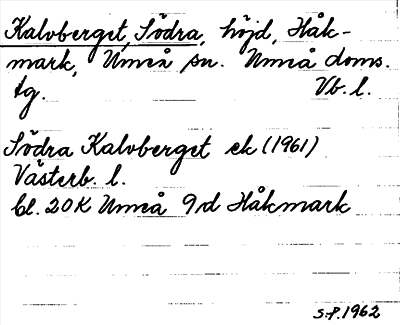 Kalvberget, Södra, höjd, Håk-
mark, Umeå sn. Umeå doms.
tg. Vb. l.
Södra Kalvberget ek (1961)
Västerb. l.
bl. 20 K Umeå 9d Håkmark
S.P. 1962